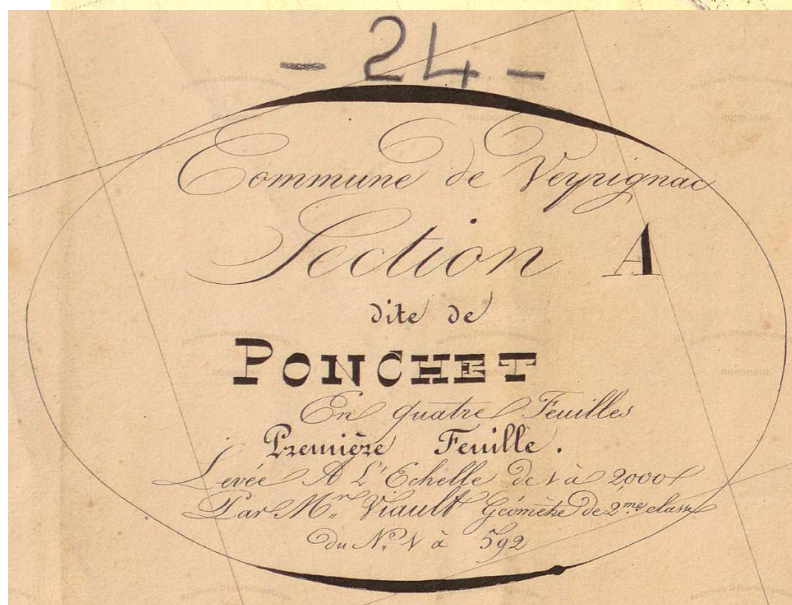 - 24 -
Commune de Veyrignac
Section A
dite de
PONCHET
En quatre Feuilles
Première Feuille.
Levée A L'Echelle de 1 à 2000
Par Mr. Viault Géomètre de 2me classe
du No. 1 à 592